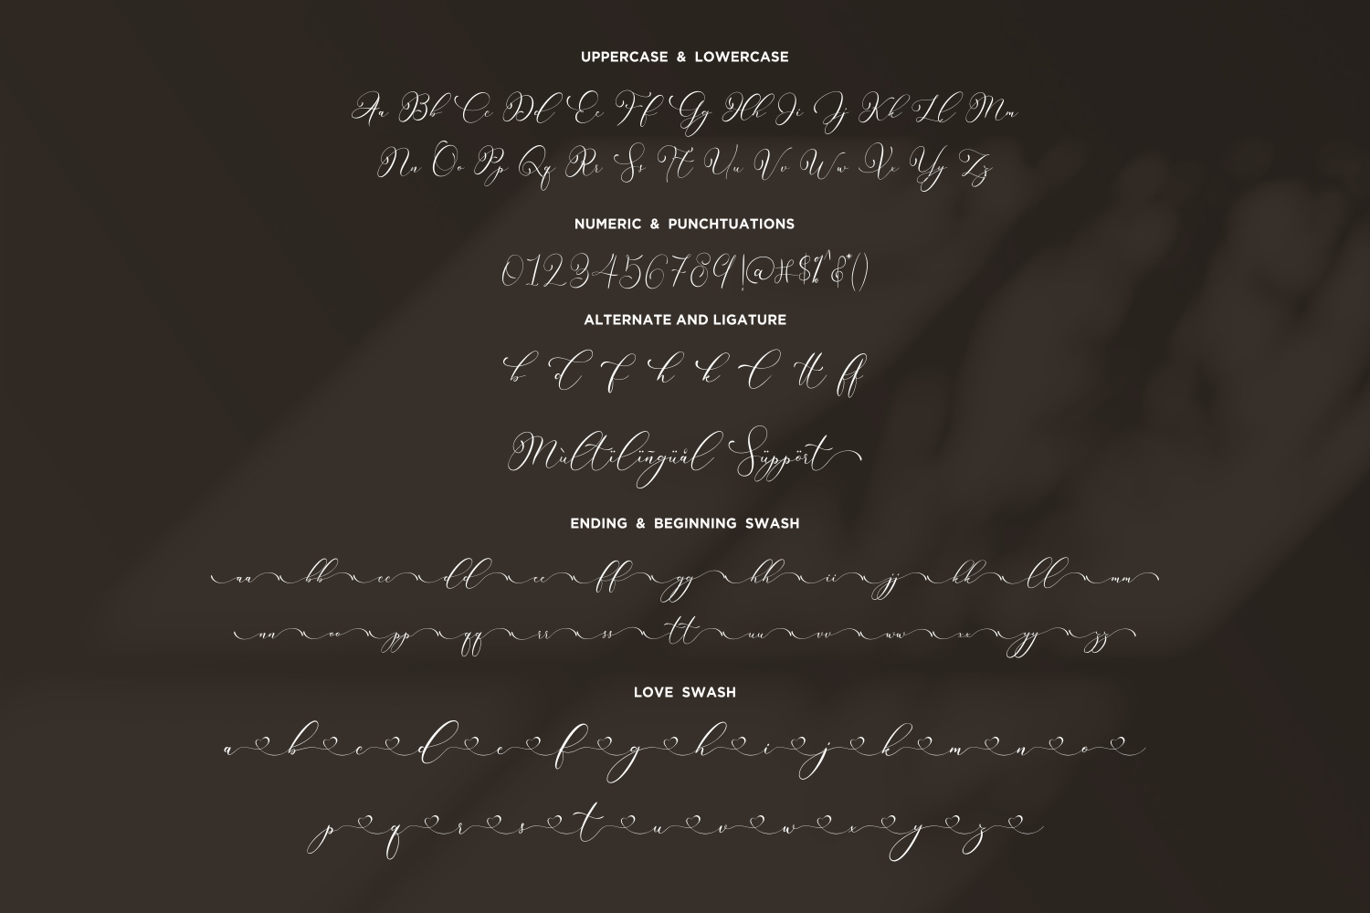 UPPERCASE & LOWERCASE
Aa Bb Cc Dd Ee Ff Gg Hh Ii Jj Kk Ll Mm
Nn Oo Pp Qq Rr Ss Tt Uu Vv Ww Xx Yy Zz
NUMERIC & PUNCHTUATIONS
0123456789!@#$%^&*()
ALTERNATE AND LIGATURE
b d f h k l tt ff
Mùltïlïñgüàl Süppört
ENDING & BEGINNING SWASH
aa bb cc dd ee ff gg hh ii jj kk ll mm
nn oo pp qq rr ss tt uu vv ww xx yy zz
LOVE SWASH
a b c d e f g h i j k m n o
p q r s t u v w x y z